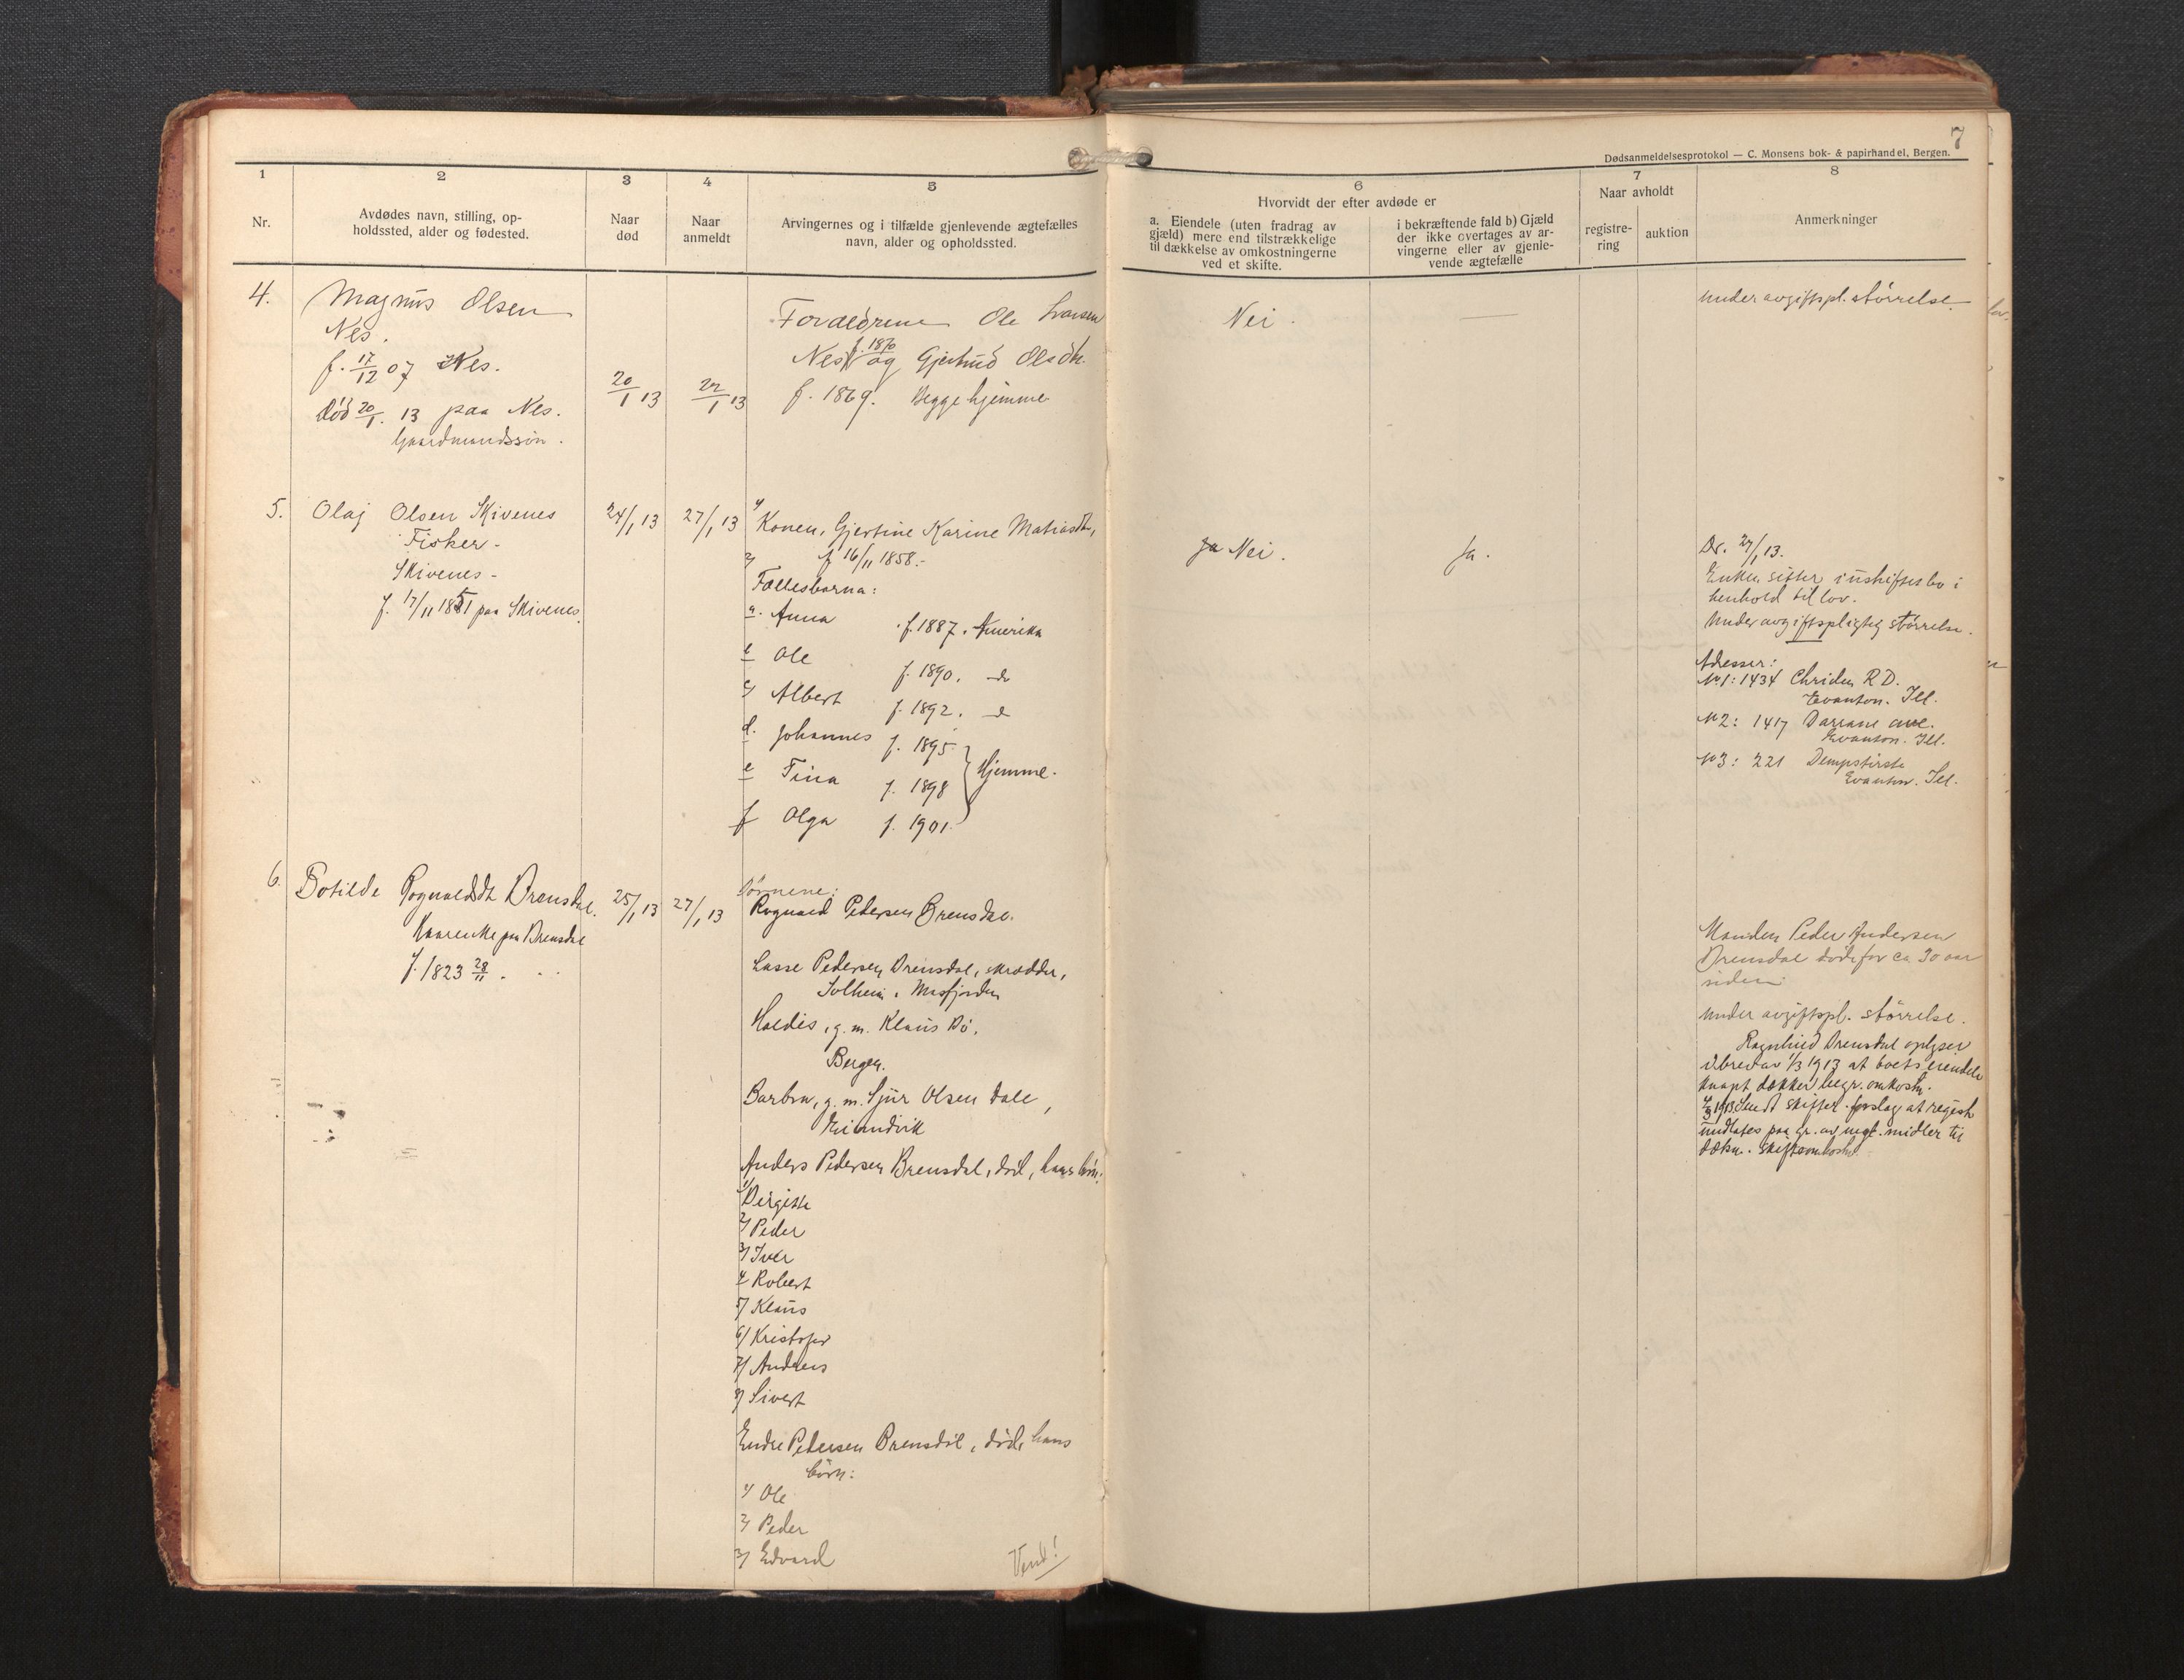 7
Dødsanmeldelsesprotokol — C. Monsens bok- & papirhandel, Bergen.
1
2
3
4
5
6
7
8
Nr.
Avdødes navn, stilling, op-
holdssted, alder og fødested.
Naar
død
Naar
anmeldt
Arvingernes og i tilfælde gjenlevende ægtefælles
navn, alder og opholdssted.
Hvorvidt der efter avdøde er
a. Eiendele (uten fradrag av
gjæld) mere end tilstrækkelige
til dækkelse av omkostningerne
ved et skifte.
i bekræftende fald b) Gjæld
der ikke overtages av ar-
vingerne eller av gjenle-
vende ægtefælle
Naar avholdt
registre-
ring
auktion
Anmerkninger
4.
Magnus Olsen
Nes.
f. 17/12 07 Nes.
død 20/1. 13 paa Nes.
Gaardmandssøn.
20/1 13
22/1 13
Forældrene Ole
Nes f. 1870 og Gjertrud Olsdtr.
f. 1869. Begge hjemme
Nei.
—
Under avgiftspl. størrelse.
5.
Olaj Olsen Skivenes
Fisker-
Skivenes-
f. 17/11 1851 paa Skivenes.
24/1 13
27/1 13
1/ Konen, Gjertine Karine Matiasdtr,
f 16/11 1858.-
2/ Fællesbarna:
a. Anna f. 1887. Amerika
b Ole f. 1890. do
c/ Albert f. 1892. do
d. Johannes f. 1895.
e Tina f. 1898
f Olga f. 1901.
Hjemme.
Ja Nei.
Ja.
Dr. 27/1 13.
Enken sitter i uskiftet bo i
henhold til lov.
Under avgiftspligtig størrelse.
Adresser:
No 1: 1434 R D.
Evanston. Ill.
No 2: 1417 ave.
Evanston. Ill.
No 3: 221
Evanston. Ill.
6.
Botilde Rognaldsdtr Brensdal.
Kaarenke paa Brensdal
f. 1823 28/11.
25/1 13
27/1 13
Børnene:
Rognald Pedersen Brensdal.
Lasse Pedersen Brensdal, skrædder,
Solheim, Masfjorden
Haldis, g. m. Klaus Bø,
Bergen.
Barbra, g. m. Sjur Olsen Dale,
Eivindvik
Anders Pedersen Brensdal, død, hans børn:
1/ Birgitte
2/ Peder
3/ Iver
4/ Robert
5/ Klaus
6/ Kristofer
7/ Andreas
8/ Sivert
Endre Pedersen Brensdal, død, hans
børn:
1/ Ole
2/ Peder
3/ Edvard
Vend!
Manden Peder Andersen
Brensdal døde for ca 30 aar
siden.
Under avgiftspl. størrelse.
Ragnhild Brensdal oplyser
i brev av 1/3 1913 at boets eiendele
knapt dækker begr. omkostn.
1913. Sendt skifter. forslag at registr.
undlates paa gr. av mgl. midler til
dækn. skifteomkostn.